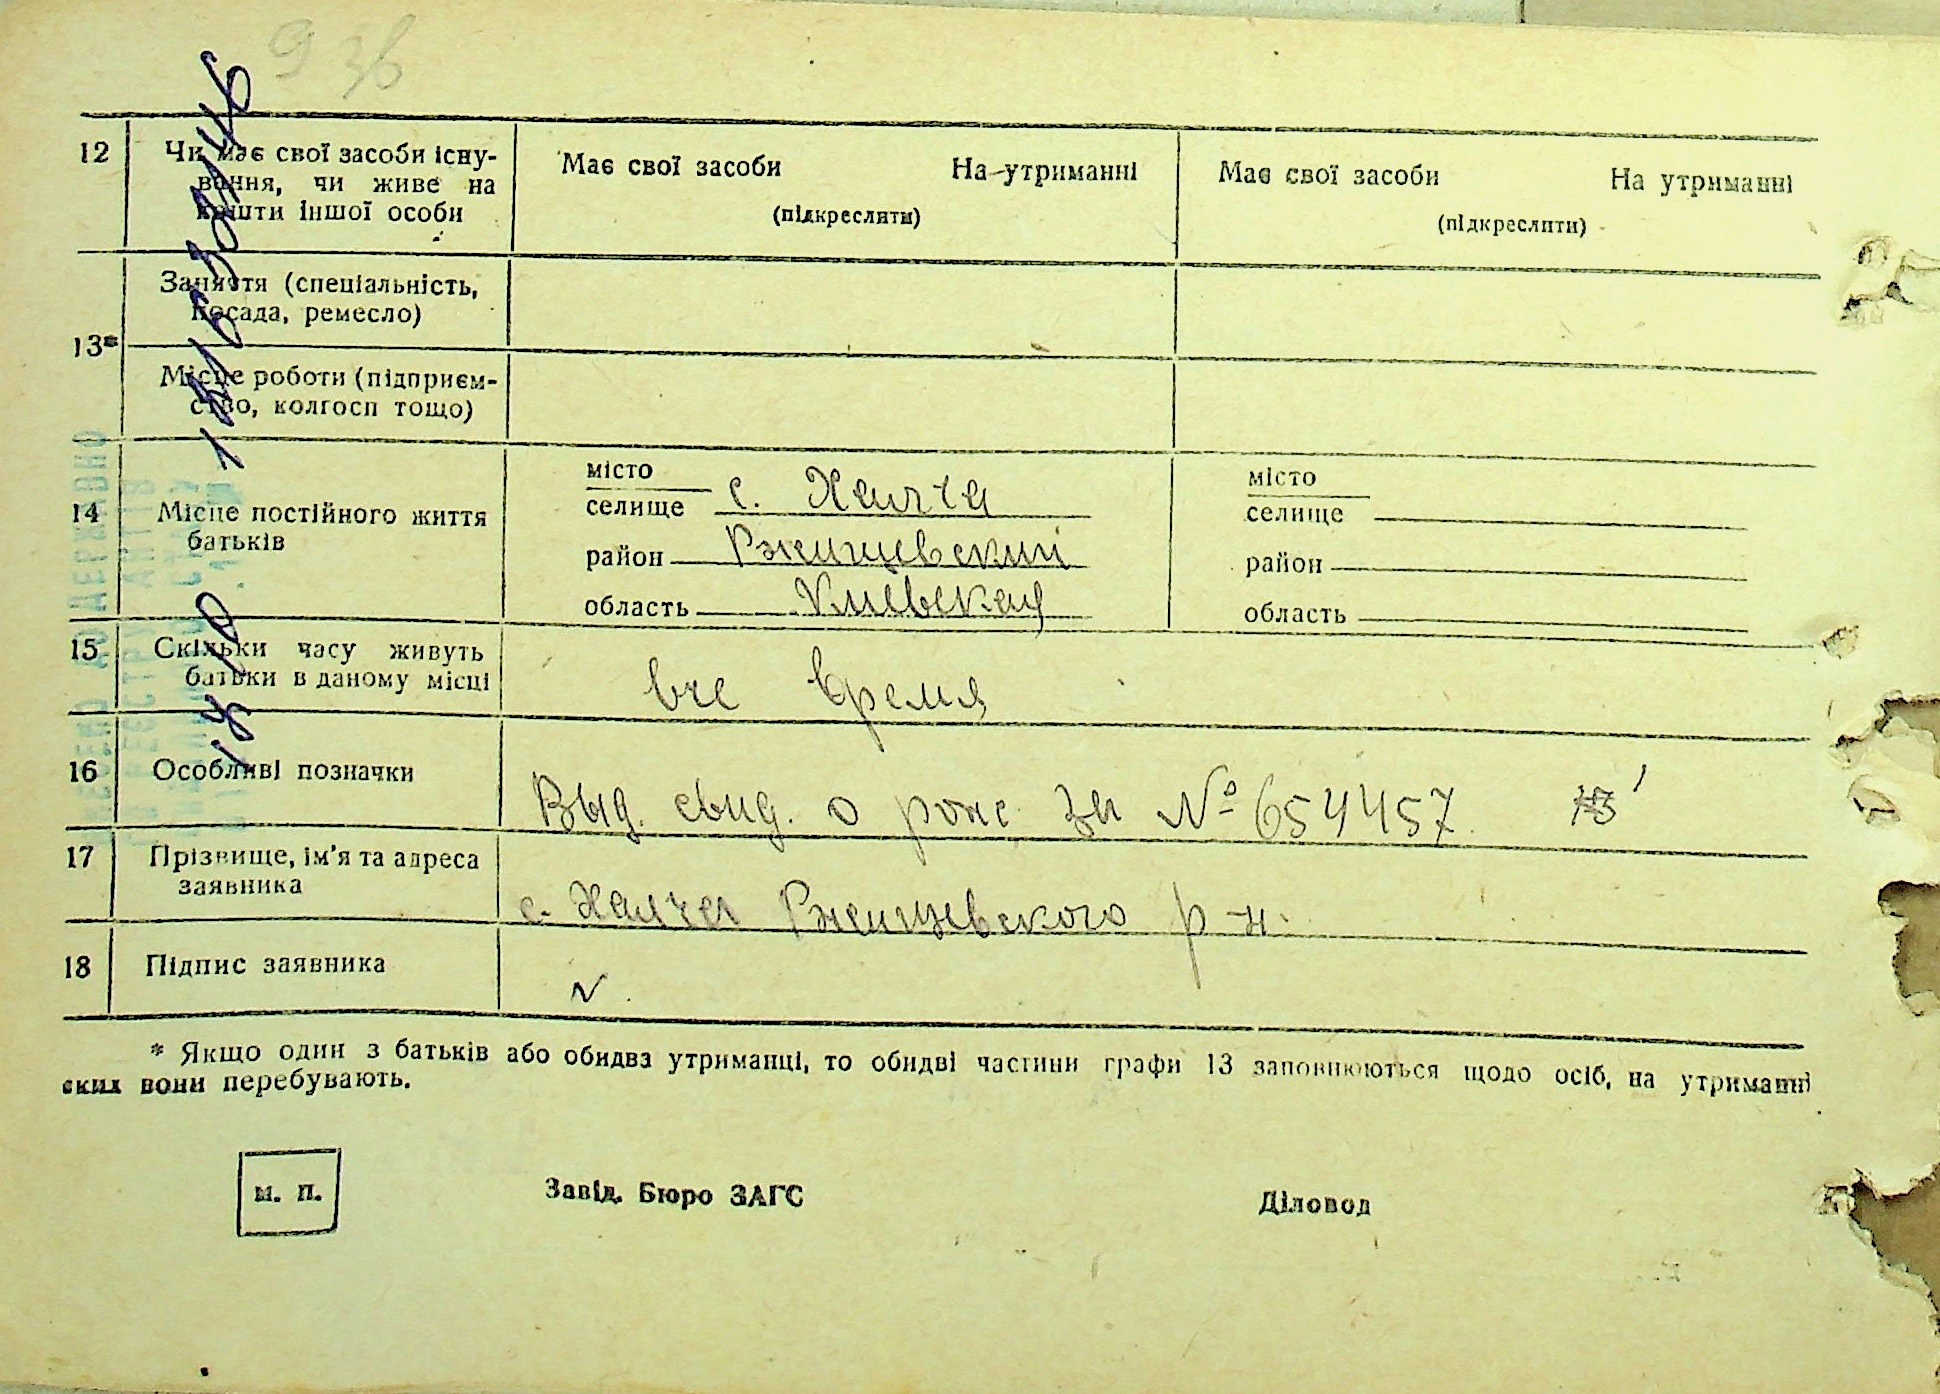 9 зв
12
Чи має свої засоби існу-
вання, чи живе на
кошти іншої особи
Має свої засоби На утриманні
(підкреслити)
Має свої засоби На утриманні
(підкреслити)
13*
Заняття (спеціальність,
посада, ремесло)
Місце роботи (підприєм-
ство, колгосп тощо)
14
Місце постійного життя
батьків
місто
селище с. Халча
район Ржищевский
область Киевская
місто
селище
район
область
15
Скільки часу живуть
батьки в даному місці
все время
16
Особливі позначки
Выд. свид. о рожд. за № 654457
17
Прізвище, ім'я та адреса
заявника
с. Халча Ржищевского р-н.
18
Підпис заявника
* Якщо один з батьків або обидва утриманці, то обидві частини графи 13 заповнюються щодо осіб, на утриманні
яких вони перебувають.
м. п.
Завід. Бюро ЗАГС
Діловод